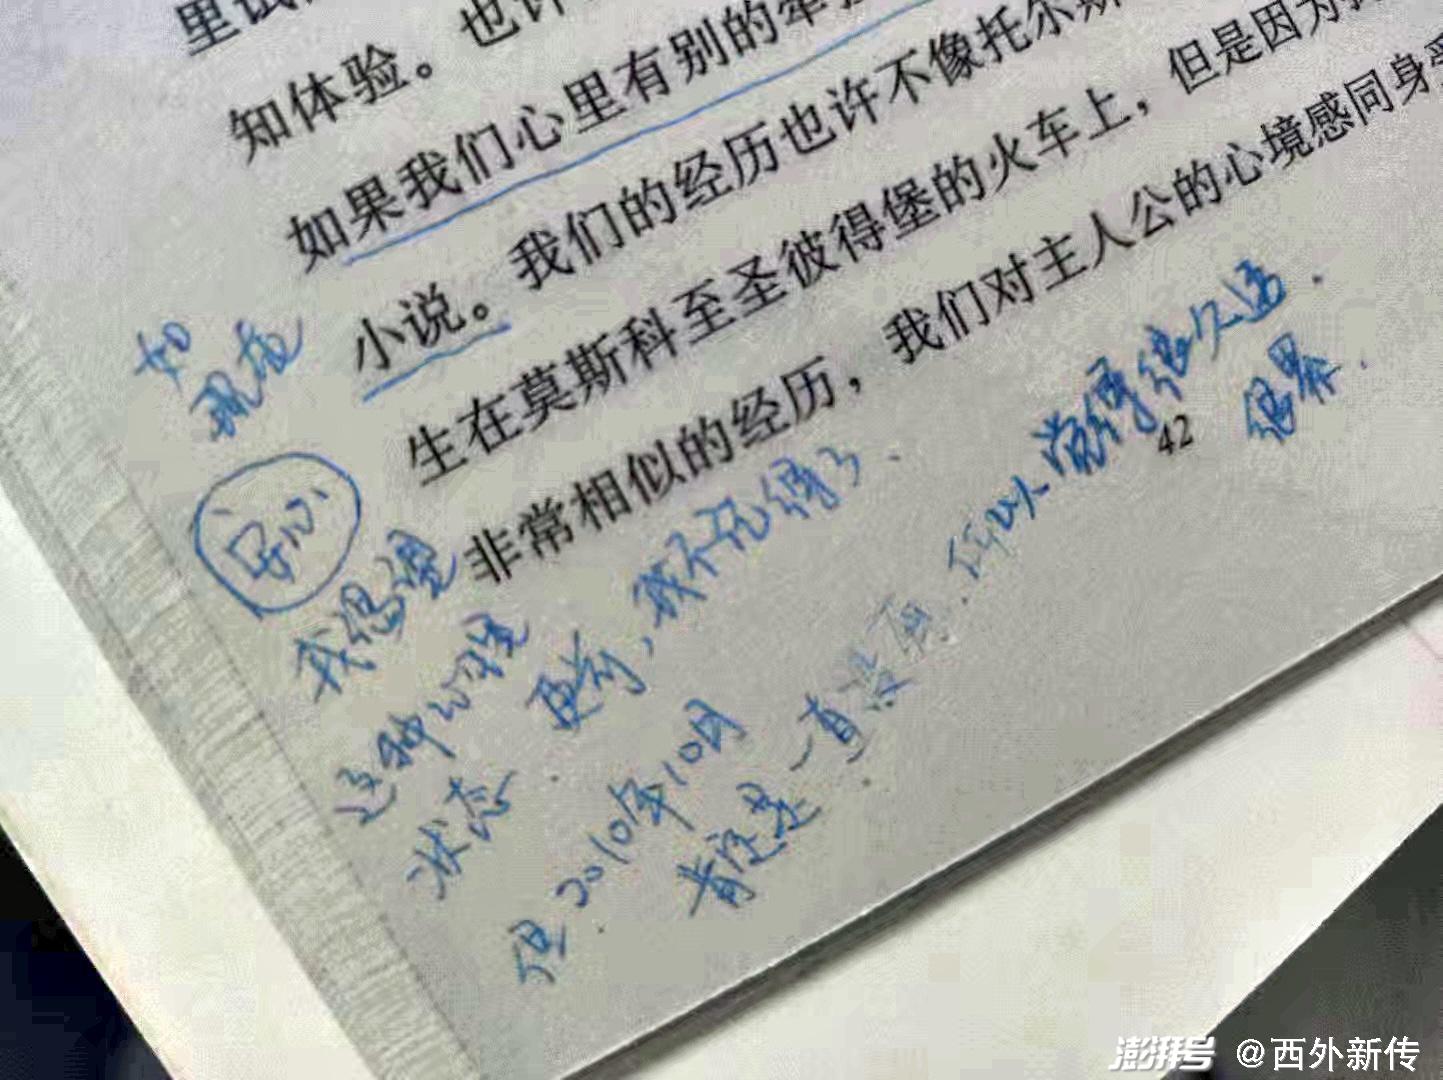 里试
知体验。也许
如果我们心里有别的牵
小说。我们的经历也许不像托尔斯
生在莫斯科至圣彼得堡的火车上，但是因为
非常相似的经历，我们对主人公的心境感同身受
42
如
现在
安心
我渴望
这种心理
状态
再前，我不记得了.
但2010年10月
肯定是一直没有.所以觉得很久远.
很累.
澎湃号 @西外新传